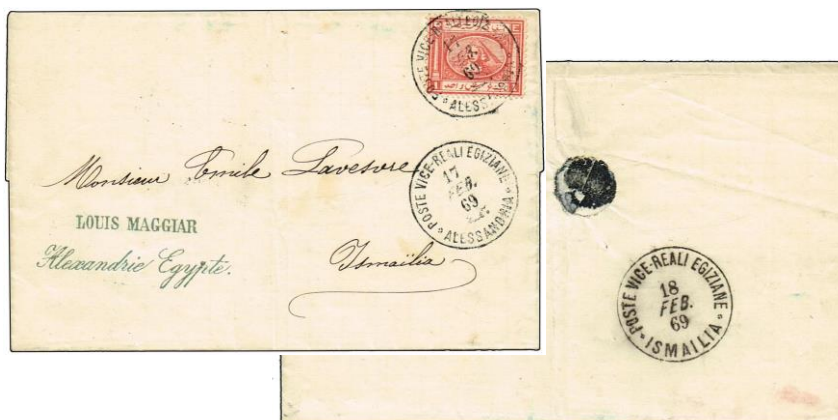 POSTE VICE-REALI EGIZIANE
17
69
ALESSANDRIA
1
1
Monsieur Emile
POSTE VICE-REALI EGIZIANE
17
FEB.
69
ALESSANDRIA
LOUIS MAGGIAR
Alexandrie Egypte.
Ismaïlia
POSTE VICE-REALI EGIZIANE
18
FEB.
69
ISMAILIA